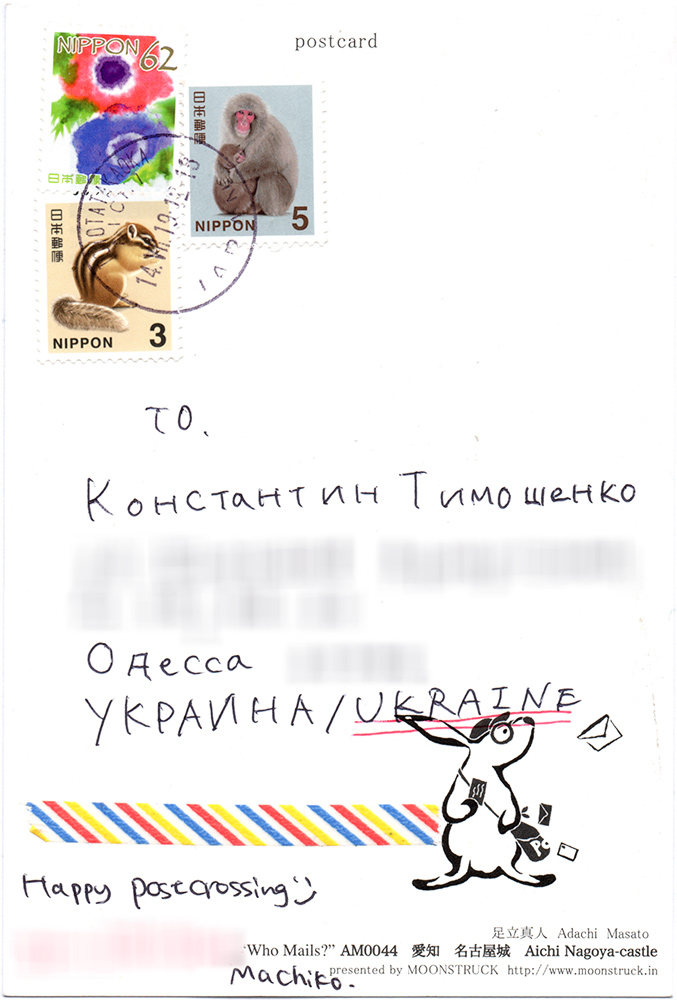 postcard
NIPPON 62
日本郵便
日本郵便
NIPPON 5
日本郵便
NIPPON 3
TO.
Константин Тимошенко
Одесса
УКРАИНА/UKRAINE
Happy postcrossing
足立真人 Adachi Masato
"Who Mails?" AM0044 愛知 名古屋城 Aichi Nagoya-castle
Machiko.
presented by MOONSTRUCK http://www.moonstruck.in